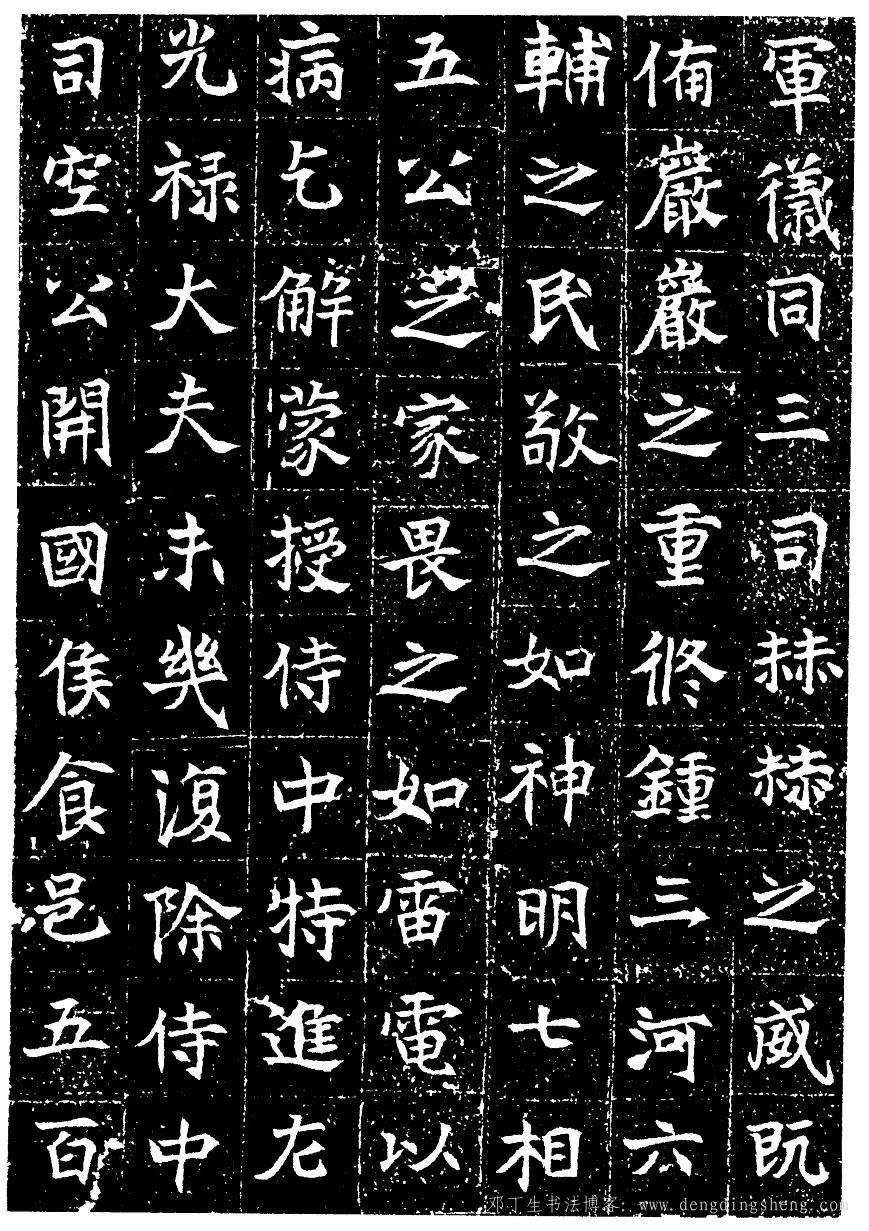 軍儀同三司赫赫之威既
俻巖巖之重俢鍾三河六
輔之民敬之如神明七相
五公之家畏之如雷電以
病乞解蒙授侍中特進左
光禄大夫未幾復除侍中
司空公開國侯食邑五百
邓丁生书法博客：www.dengdingsheng.com